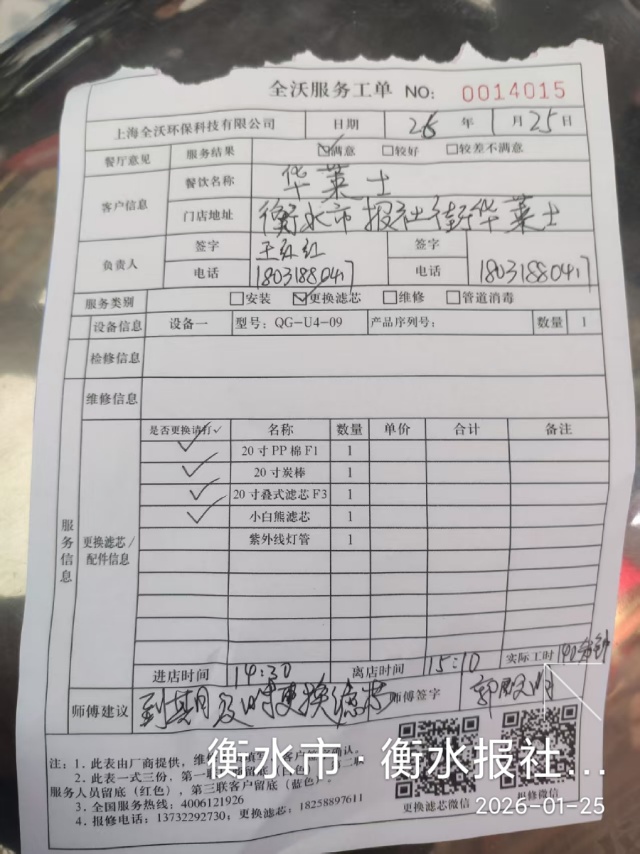 全沃服务工单 NO: 0014015
上海全沃环保科技有限公司 日期 26 年 1 月 25 日
餐厅意见 服务结果 ☑满意 □较好 □较差不满意
客户信息 餐饮名称 华莱士
门店地址 衡水市报社街华莱士
负责人 签字 王红红 签字
电话 18031880417 电话 18031880417
服务类别 □安装 ☑更换滤芯 □维修 □管道消毒
设备信息 设备一 型号: QG-U4-09 产品序列号: 数量 1
检修信息
维修信息
服务信息
更换滤芯/配件信息
是否更换请打✓ 名称 数量 单价 合计 备注
✓ 20寸PP棉F1 1
✓ 20寸炭棒 1
✓ 20寸叠式滤芯F3 1
✓ 小白熊滤芯 1
紫外线灯管 1
进店时间 14:30 离店时间 15:10 实际工时 40分钟
师傅建议 到其月及时更换滤芯 师傅签字
注: 1. 此表由厂商提供, 维
2. 此表一式三份, 第一联
服务人员留底 (红色), 第三联客户留底 (蓝色)。
3. 全国服务热线: 4006121926
4. 报修电话: 13732292730; 更换滤芯: 18258897611
更换滤芯微信 报修微信
衡水市·衡水报社...
2026-01-25